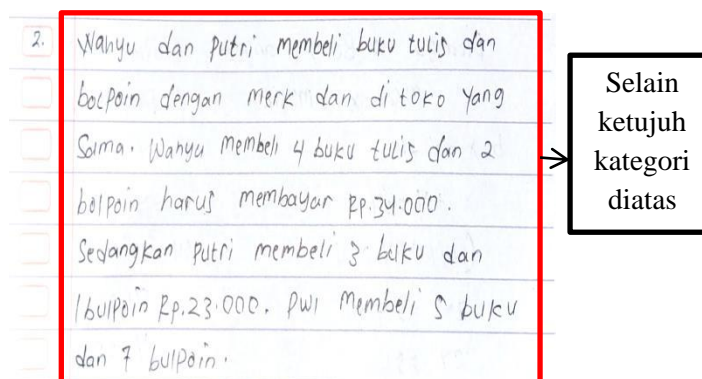 2. Wahyu dan putri membeli buku tulis dan
bolpoin dengan merk dan di toko yang
Sama. Wahyu membeli 4 buku tulis dan 2
bolpoin harus membayar Rp.34.000.
Sedangkan Putri membeli 3 buku dan
1 bulpoin Rp.23.000. Dwi membeli 5 buku
dan 7 bulpoin.
Selain
ketujuh
kategori
diatas